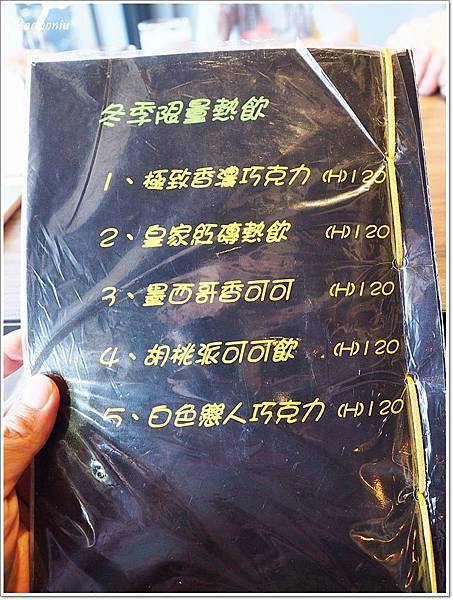 冬季限量熱飲
1、極致香濃巧克力 (H)120
2、皇家紅磚熱飲 (H)120
3、墨西哥香可可 (H)120
4、胡桃派可可飲 (H)120
5、白色戀人巧克力 (H)120